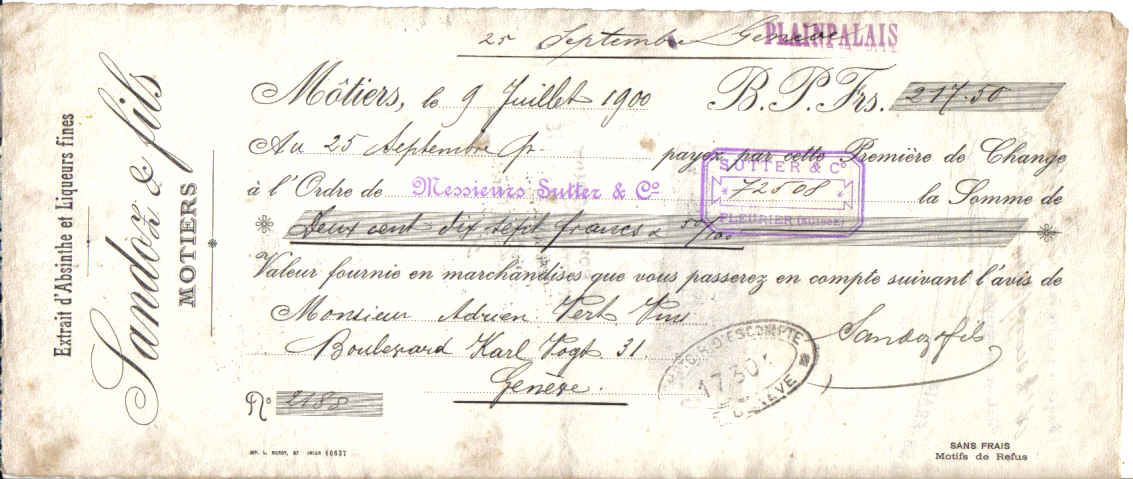 Extrait d'Absinthe et Liqueurs fines
Sandoz & fils
MOTIERS
25 Septembre Genève
PLAINPALAIS
Môtiers, le 9 Juillet 1900 B.P.Frs. 217.50
Au 25 Septembre p. payez par cette Première de Change
à l'Ordre de Messieurs Sutter & Co. la Somme de
SUTTER & Co.
72508
FLEURIER (SUISSE)
Deux cent dix sept francs & 50/100
Valeur fournie en marchandises que vous passerez en compte suivant l'avis de
Monsieur Adrien Vert
Boulevard Karl Vogt 31.
Genève.
Sandoz fils
D'ESCOMPTE
1730
GENÈVE
No. 2188
SANS FRAIS
Motifs de Refus